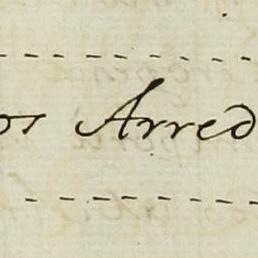 os Arred